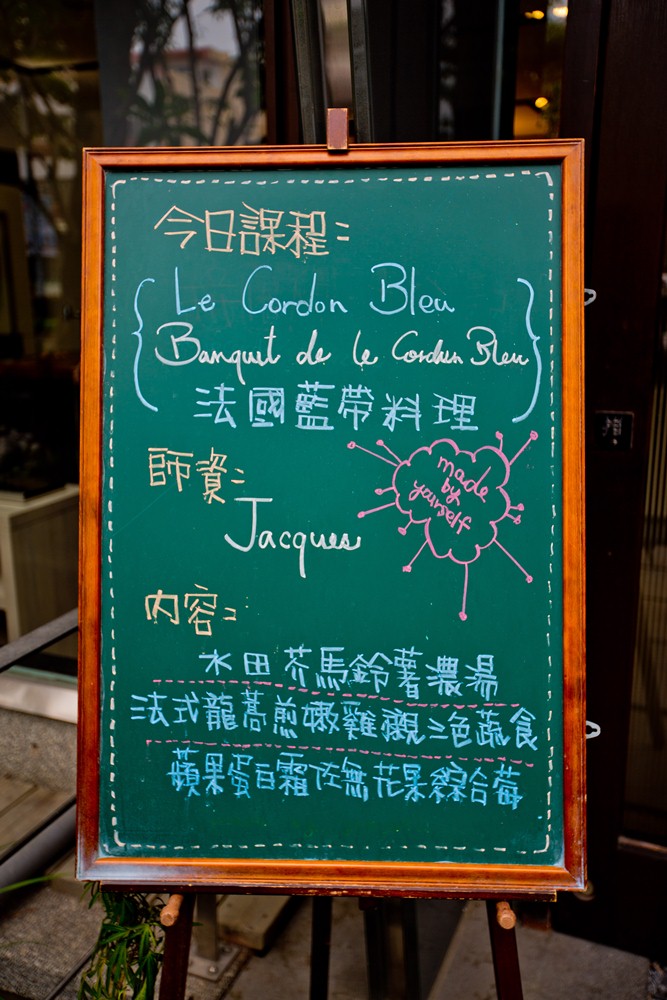 今日課程:
Le Cordon Bleu
Banquet de le Cordon Bleu
法國藍帶料理
師資:
Jacques
made
by
yourself
內容:
水田芥馬鈴薯濃湯
法式龍蒿煎嫩雞襯三色蔬食
蘋果蛋白霜佐無花果綜合莓